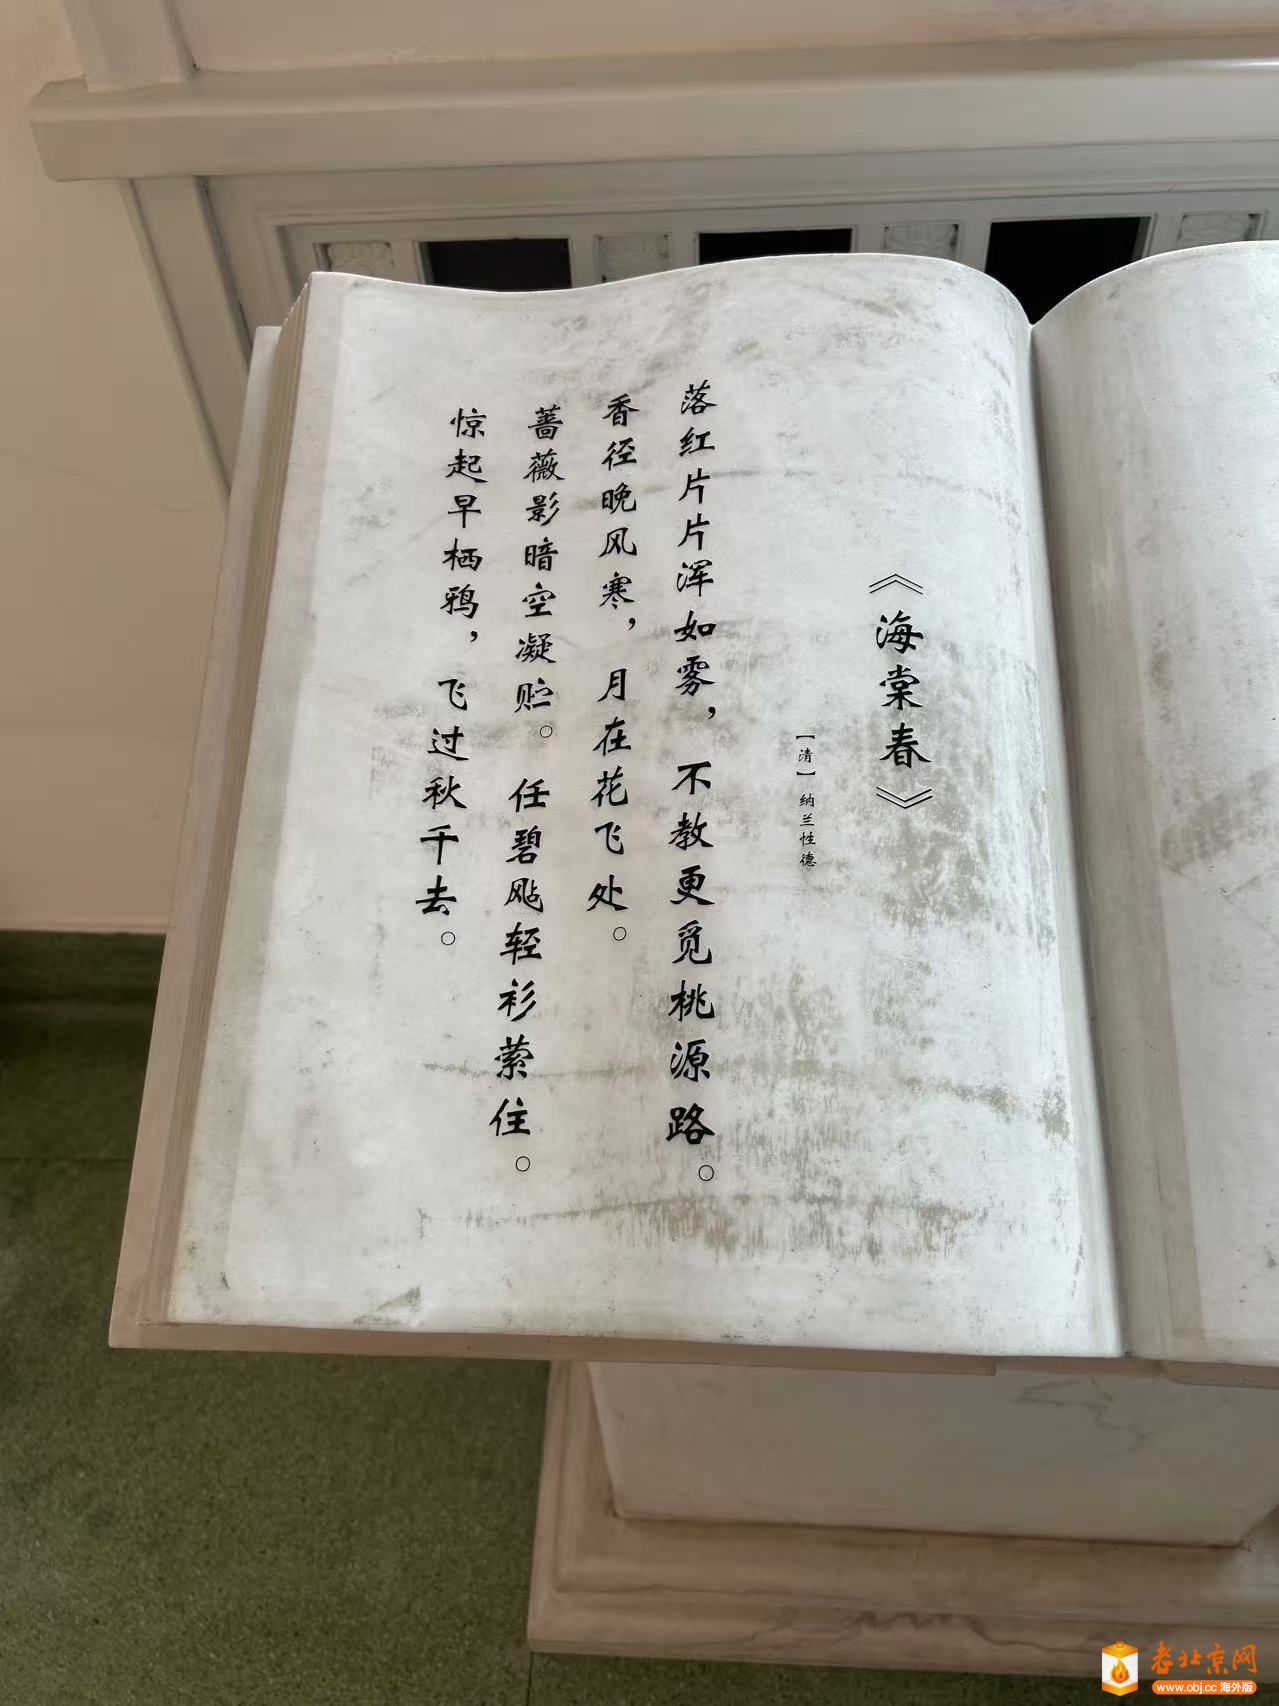 《海棠春》
【清】纳兰性德
落红片片浑如雾，不教更觅桃源路。
香径晚风寒，月在花飞处。
蔷薇影暗空凝贮。任碧飐轻衫萦住。
惊起早栖鸦，飞过秋千去。
老北京网
www.obj.cc 海外版